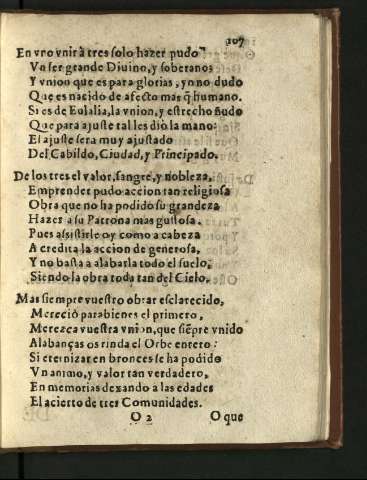 107
En vro vnir à tres solo hazer pudo
Vn ser grande Diuino, y soberano:
Y vnion que es para glorias, yo no dudo
Que es nacido de afecto mas q̃ humano.
Si es de Eulalia, la vnion, y estrecho ñudo
Que para ajuste tal les diò la mano:
El ajuste sera muy ajustado
Del Cabildo, Ciudad, y Principado.
De los tres el valor, sangre, y nobleza,
Emprender pudo accion tan religiosa
Obra que no ha podido su grandeza
Hazer a su Patrona mas gustosa.
Pues assistirle oy como a cabeza
A credita la accion de generosa,
Y no basta a alabarla todo el suelo,
Siendo la obra toda tan del Cielo.
Mas siempre vuestro obrar esclarecido,
Mereciò parabienes el primero,
Merezca vuestra vnion, que siẽpre vnido
Alabanças os rinda el Orbe entero:
Si eternizar en bronces se ha podido
Vn animo, y valor tan verdadero,
En memorias dexando a las edades
El acierto de tres Comunidades.
O 2 O que